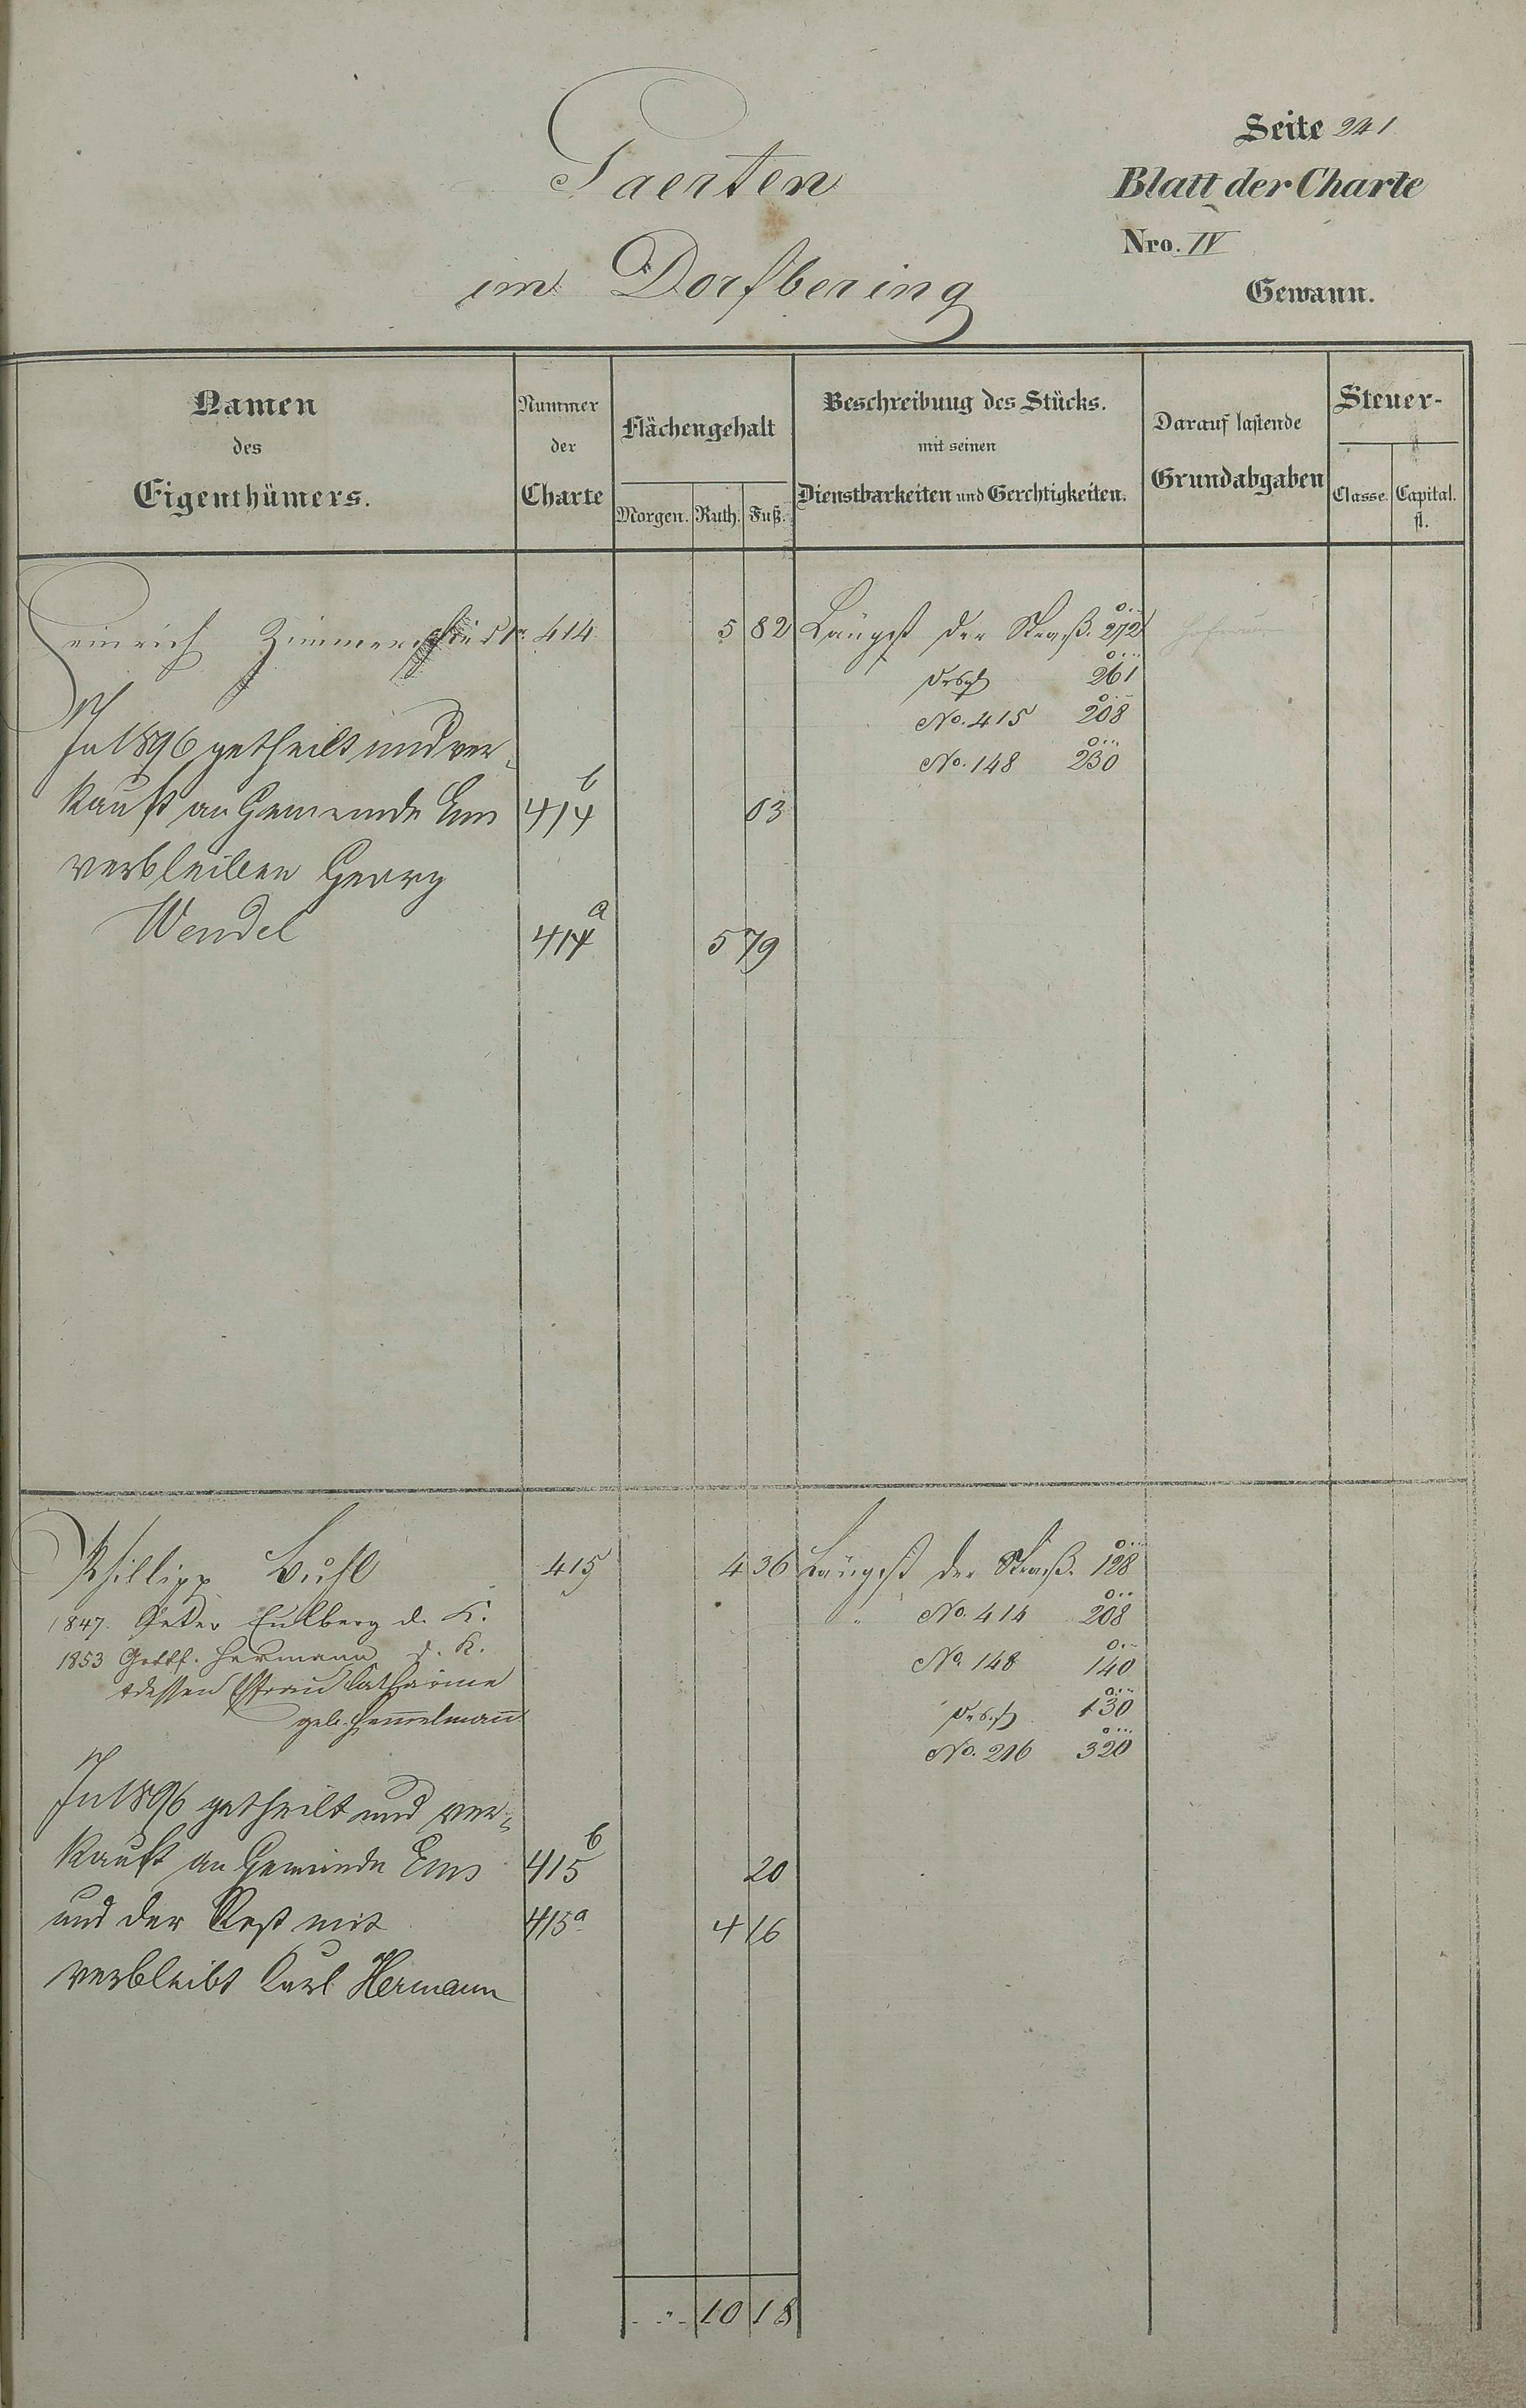 Gaerten
im Dorfbering
Seite 241
Blatt der Charte
Nro. IV
Gewann.
Namen des Eigenthümers.
Nummer der Charte
Flächengehalt
Morgen. Ruth. Fuß.
Beschreibung des Stücks. mit seinen Dienstbarkeiten und Gerechtigkeiten.
Darauf lastende Grundabgaben
Steuer-
Classe. Capital. fl.
Heinrich 414 5 82 Längst der Straß. 272
desgl 261
No. 415 208
No. 148 230
In 1896 getheilt und ver-
kauft an Gemeinde Ems 414 b 03
verbleiben Georg
Wendel 414 a 5 79
Phillipp Buhl 415 4 36 Längst der Straß. 128
1847. Peter Eulberg d. K. " No. 414 208
1853 Gottf. Hermann d. K. No. 148 140
dessen Ehfrau Catharine desgl 130
geb. Hem̅elman̅ No. 216 320
In 1896 getheilt und ver-
kauft an Gemeinde Ems 415 b 20
und der Rest mit 415 a 4 16
verbleibt Carl Hermann
" 10 18